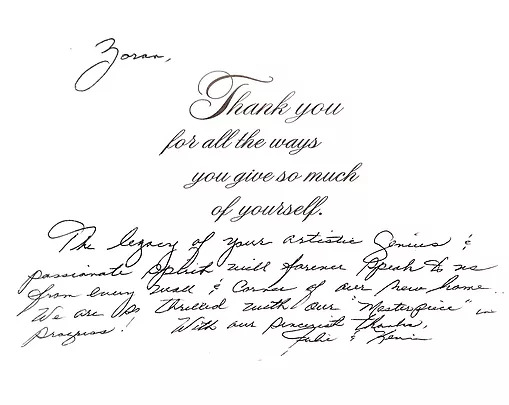 Zoran,
Thank you
for all the ways
you give so much
of yourself.
The legacy of your artistic Genius &
passionate Spirit will forever Speak to us
from every wall & Corner of our new home..
We are so Thrilled with our "Masterpiece" in
progress! With our sincerest thanks,
Julie & Kevin